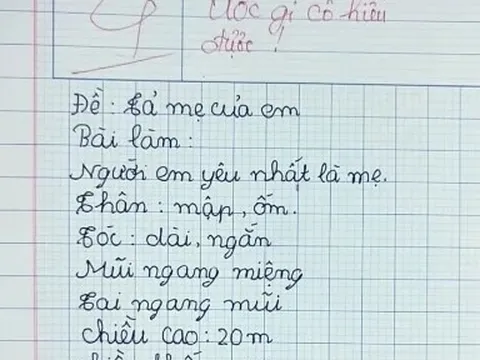 Ước gì cô hiểu
được!
Đề: Tả mẹ của em
Bài làm:
Người em yêu nhất là mẹ.
Thân: mập, ốm.
Tóc: dài, ngắn
Mũi ngang miệng
Tai ngang mũi
chiều cao: 20m